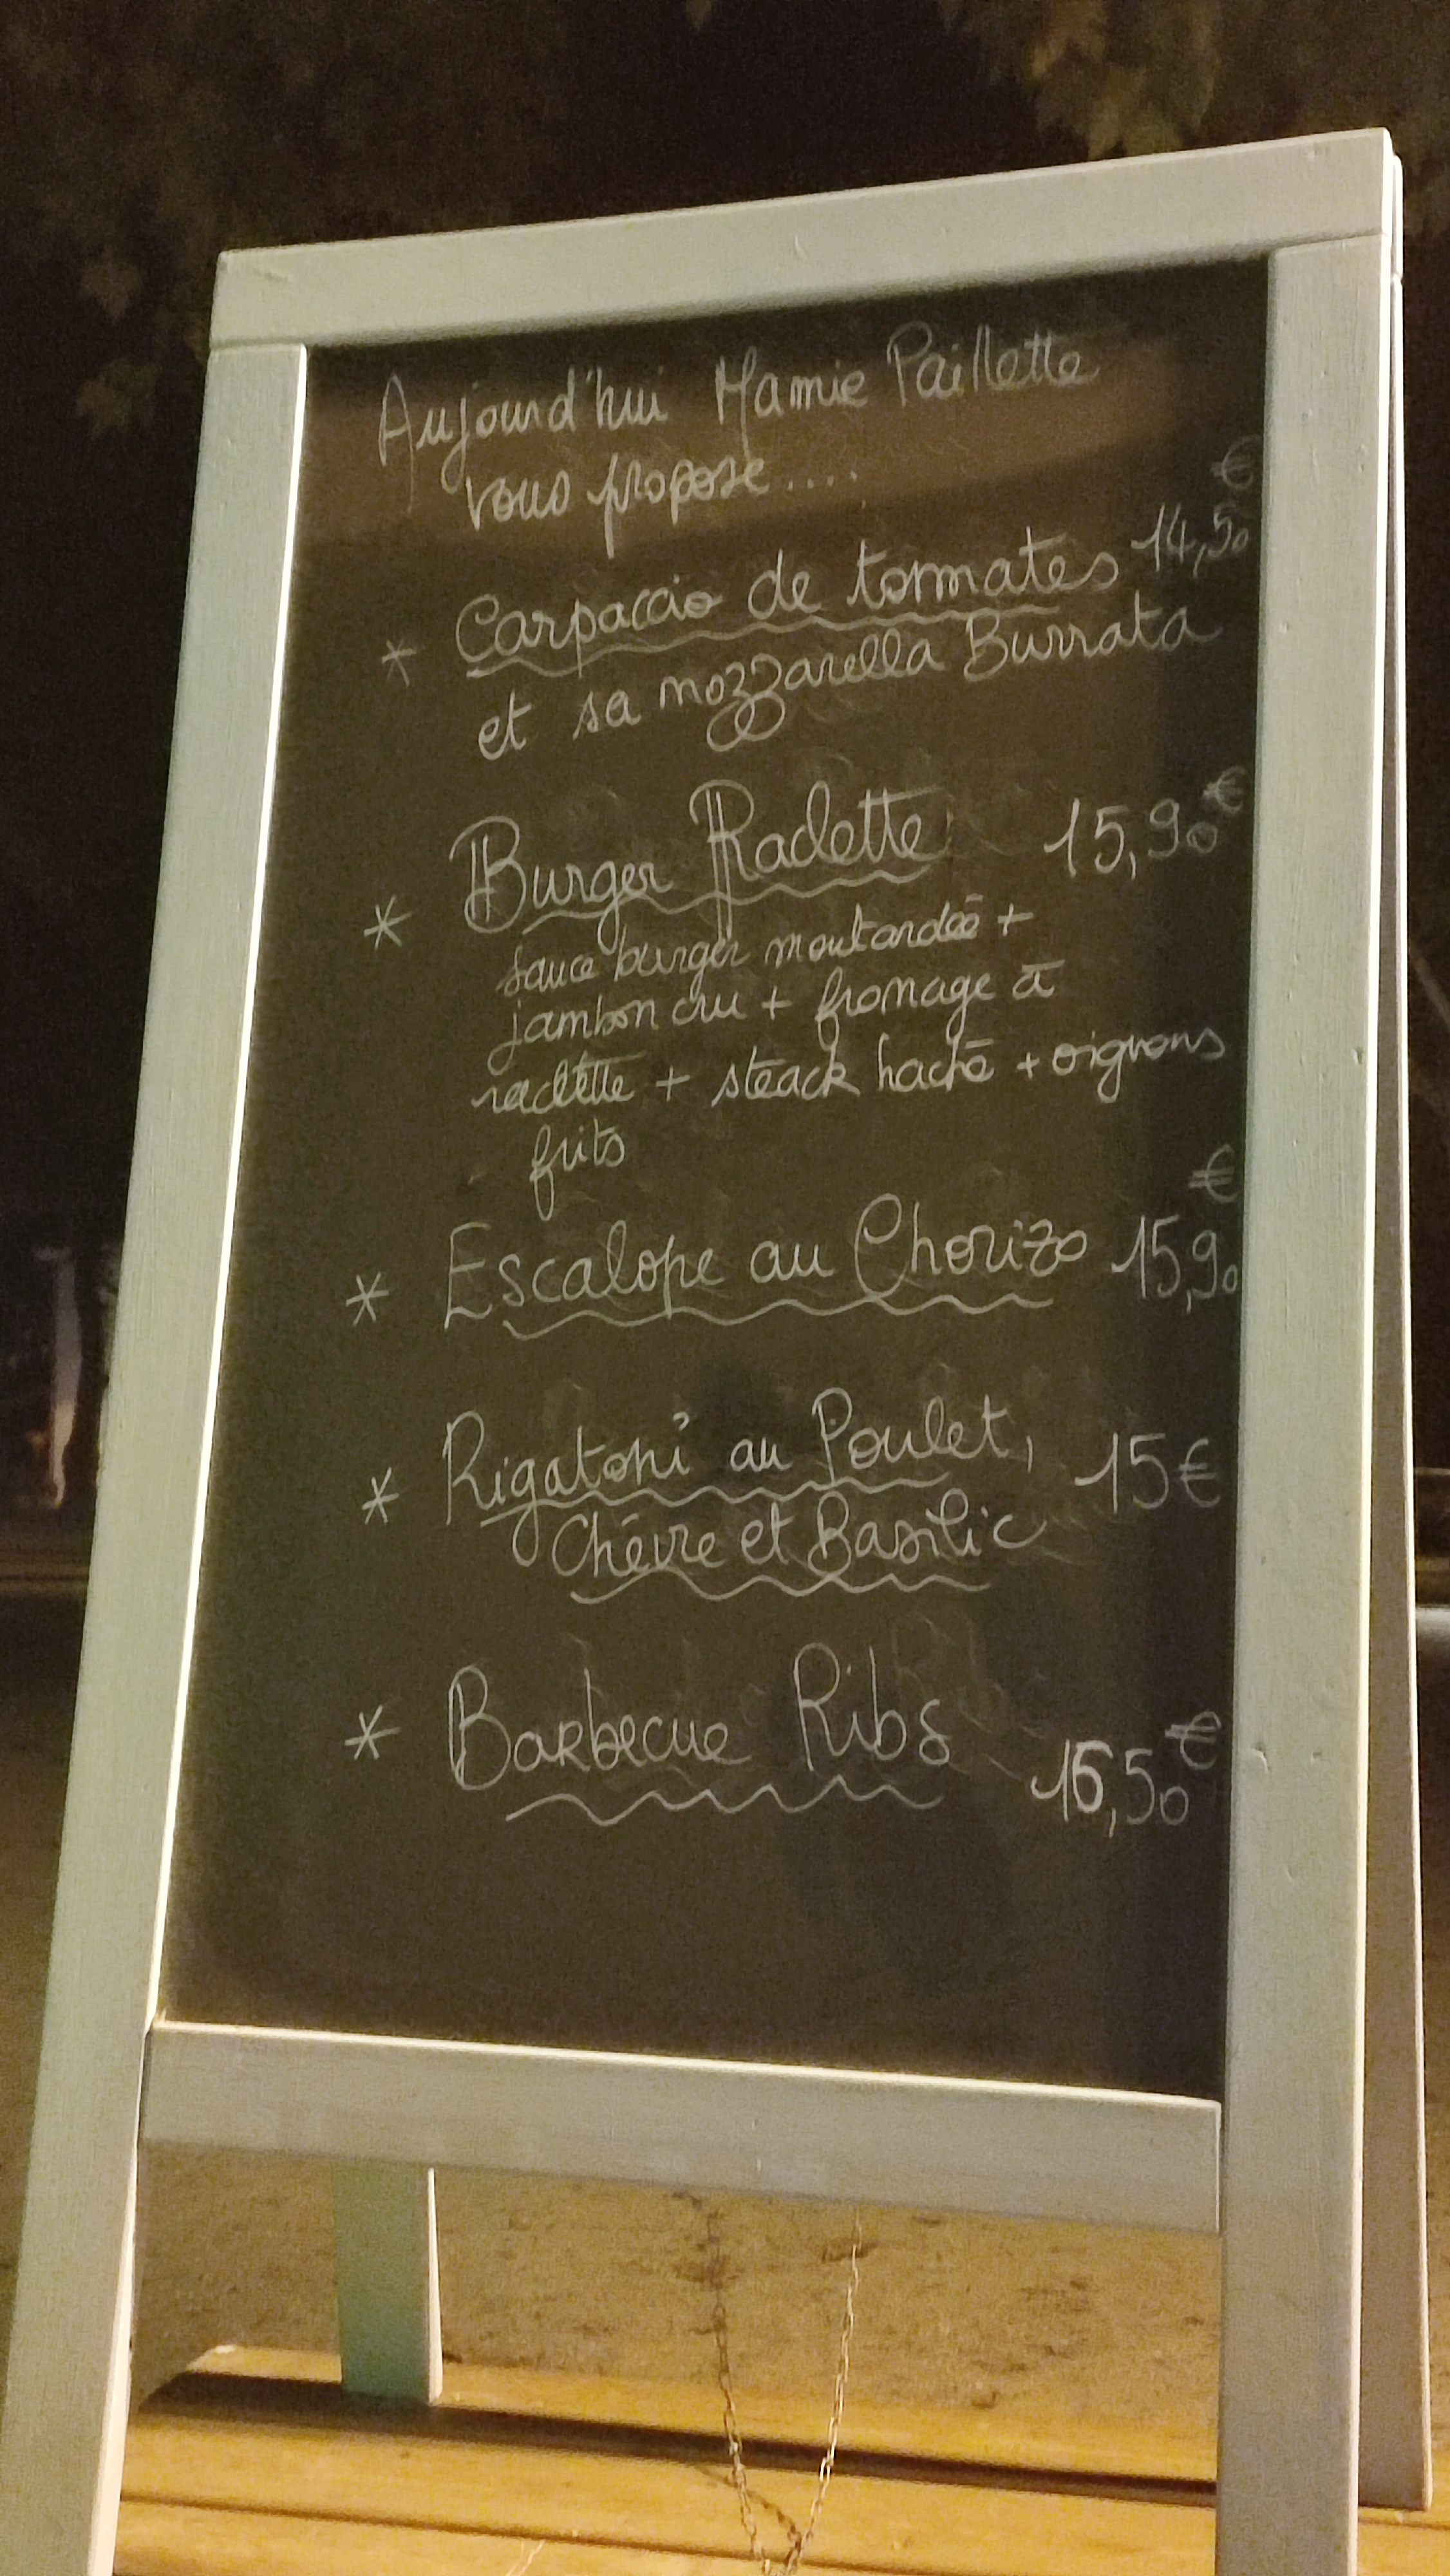 Aujourd'hui Mamie Paillette
vous propose....
* Carpaccio de tomates 14,50 €
et sa mozzarella Burrata
* Burger Raclette 15,90 €
sauce burger moutardée +
jambon cru + fromage à
raclette + steack haché + oignons
frits
* Escalope au Chorizo 15,90 €
* Rigatoni au Poulet, 15 €
Chèvre et Basilic
* Barbecue Ribs 16,50 €